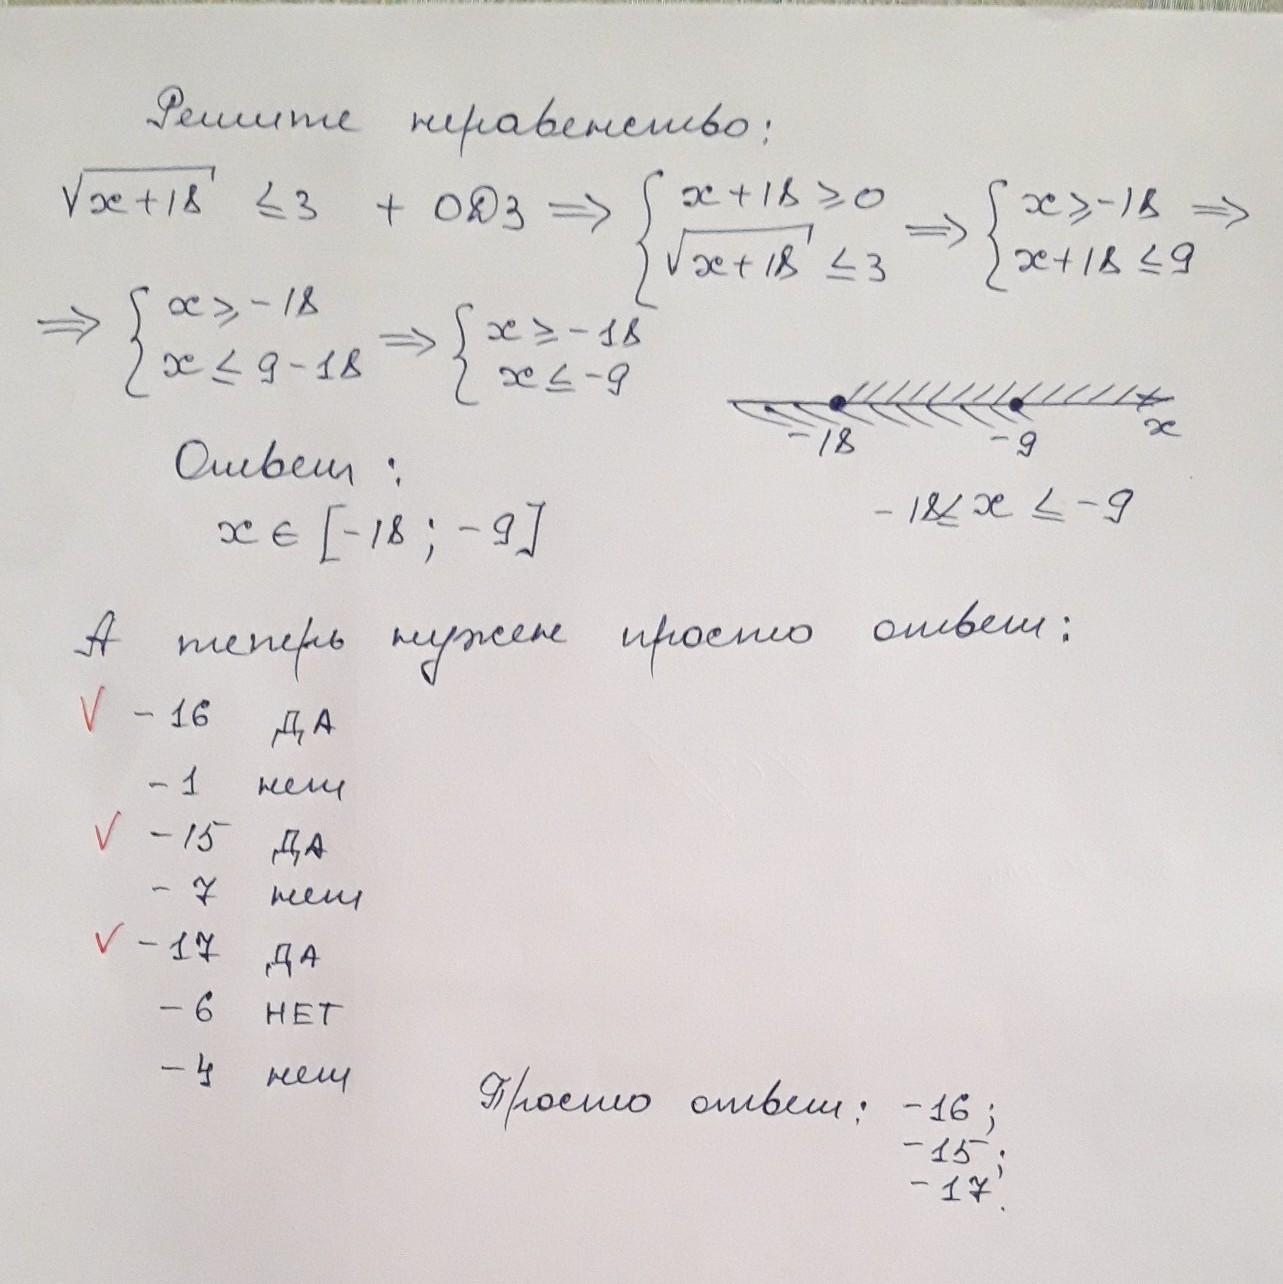 Решите неравенство:
√x+18 ≤3 + ОДЗ ⇒ { x+18 ≥0 √x+18 ≤3 ⇒ { x≥-18 x+18 ≤9 ⇒
⇒ { x≥-18 x ≤ 9-18 ⇒ { x≥-18 x≤-9
-18 -9 x
Ответ:
-18≤ x ≤ -9
x ∈ [-18 ; -9]
А теперь нужен просто ответ:
√ -16 ДА
-1 нет
√ -15 ДА
-7 нет
√ -17 ДА
-6 НЕТ
-4 нет
Просто ответ: -16;
-15;
-17.